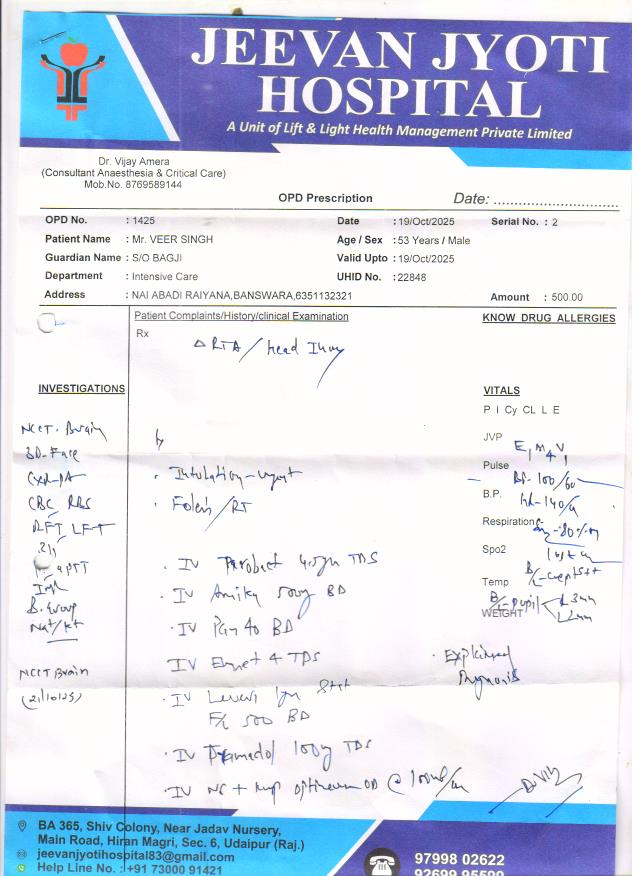 JEEVAN JYOTI
HOSPITAL
A Unit of Lift & Light Health Management Private Limited
Dr. Vijay Amera
(Consultant Anaesthesia & Critical Care)
Mob.No. 8769589144
OPD Prescription
Date: ..............................
OPD No. : 1425 Date : 19/Oct/2025 Serial No. : 2
Patient Name : Mr. VEER SINGH Age / Sex : 53 Years / Male
Guardian Name : S/O BAGJI Valid Upto : 19/Oct/2025
Department : Intensive Care UHID No. : 22848
Address : NAI ABADI RAIYANA,BANSWARA,6351132321 Amount : 500.00
Patient Complaints/History/clinical Examination
KNOW DRUG ALLERGIES
Rx
Δ RTA / Head Injury
INVESTIGATIONS
NCCT. Brain
3D-Face
CXR-PA
CBC RBS
RFT LFT
aPTT
B. Group
Na+/K+
NCCT Brain
(21/10/25)
Intubation - urgent
Foley's / RT
IV 4.5gm TDS
IV Amika 500mg BD
IV Pan 40 BD
IV Emet 4 TDS
IV 1gm Stat
F/b 500 BD
IV Tramadol 100mg TDS
IV NS + OD @ 100ml/hr
VITALS
P I Cy CL L E
JVP
E1 M4 V1
Pulse
BP-100/60
B.P.
HR-140/m
Respiration
Spo2
Temp
WEIGHT
Explained
Prognosis
BA 365, Shiv Colony, Near Jadav Nursery,
Main Road, Hiran Magri, Sec. 6, Udaipur (Raj.)
jeevanjyotihospital83@gmail.com
Help Line No. : +91 73000 91421
97998 02622